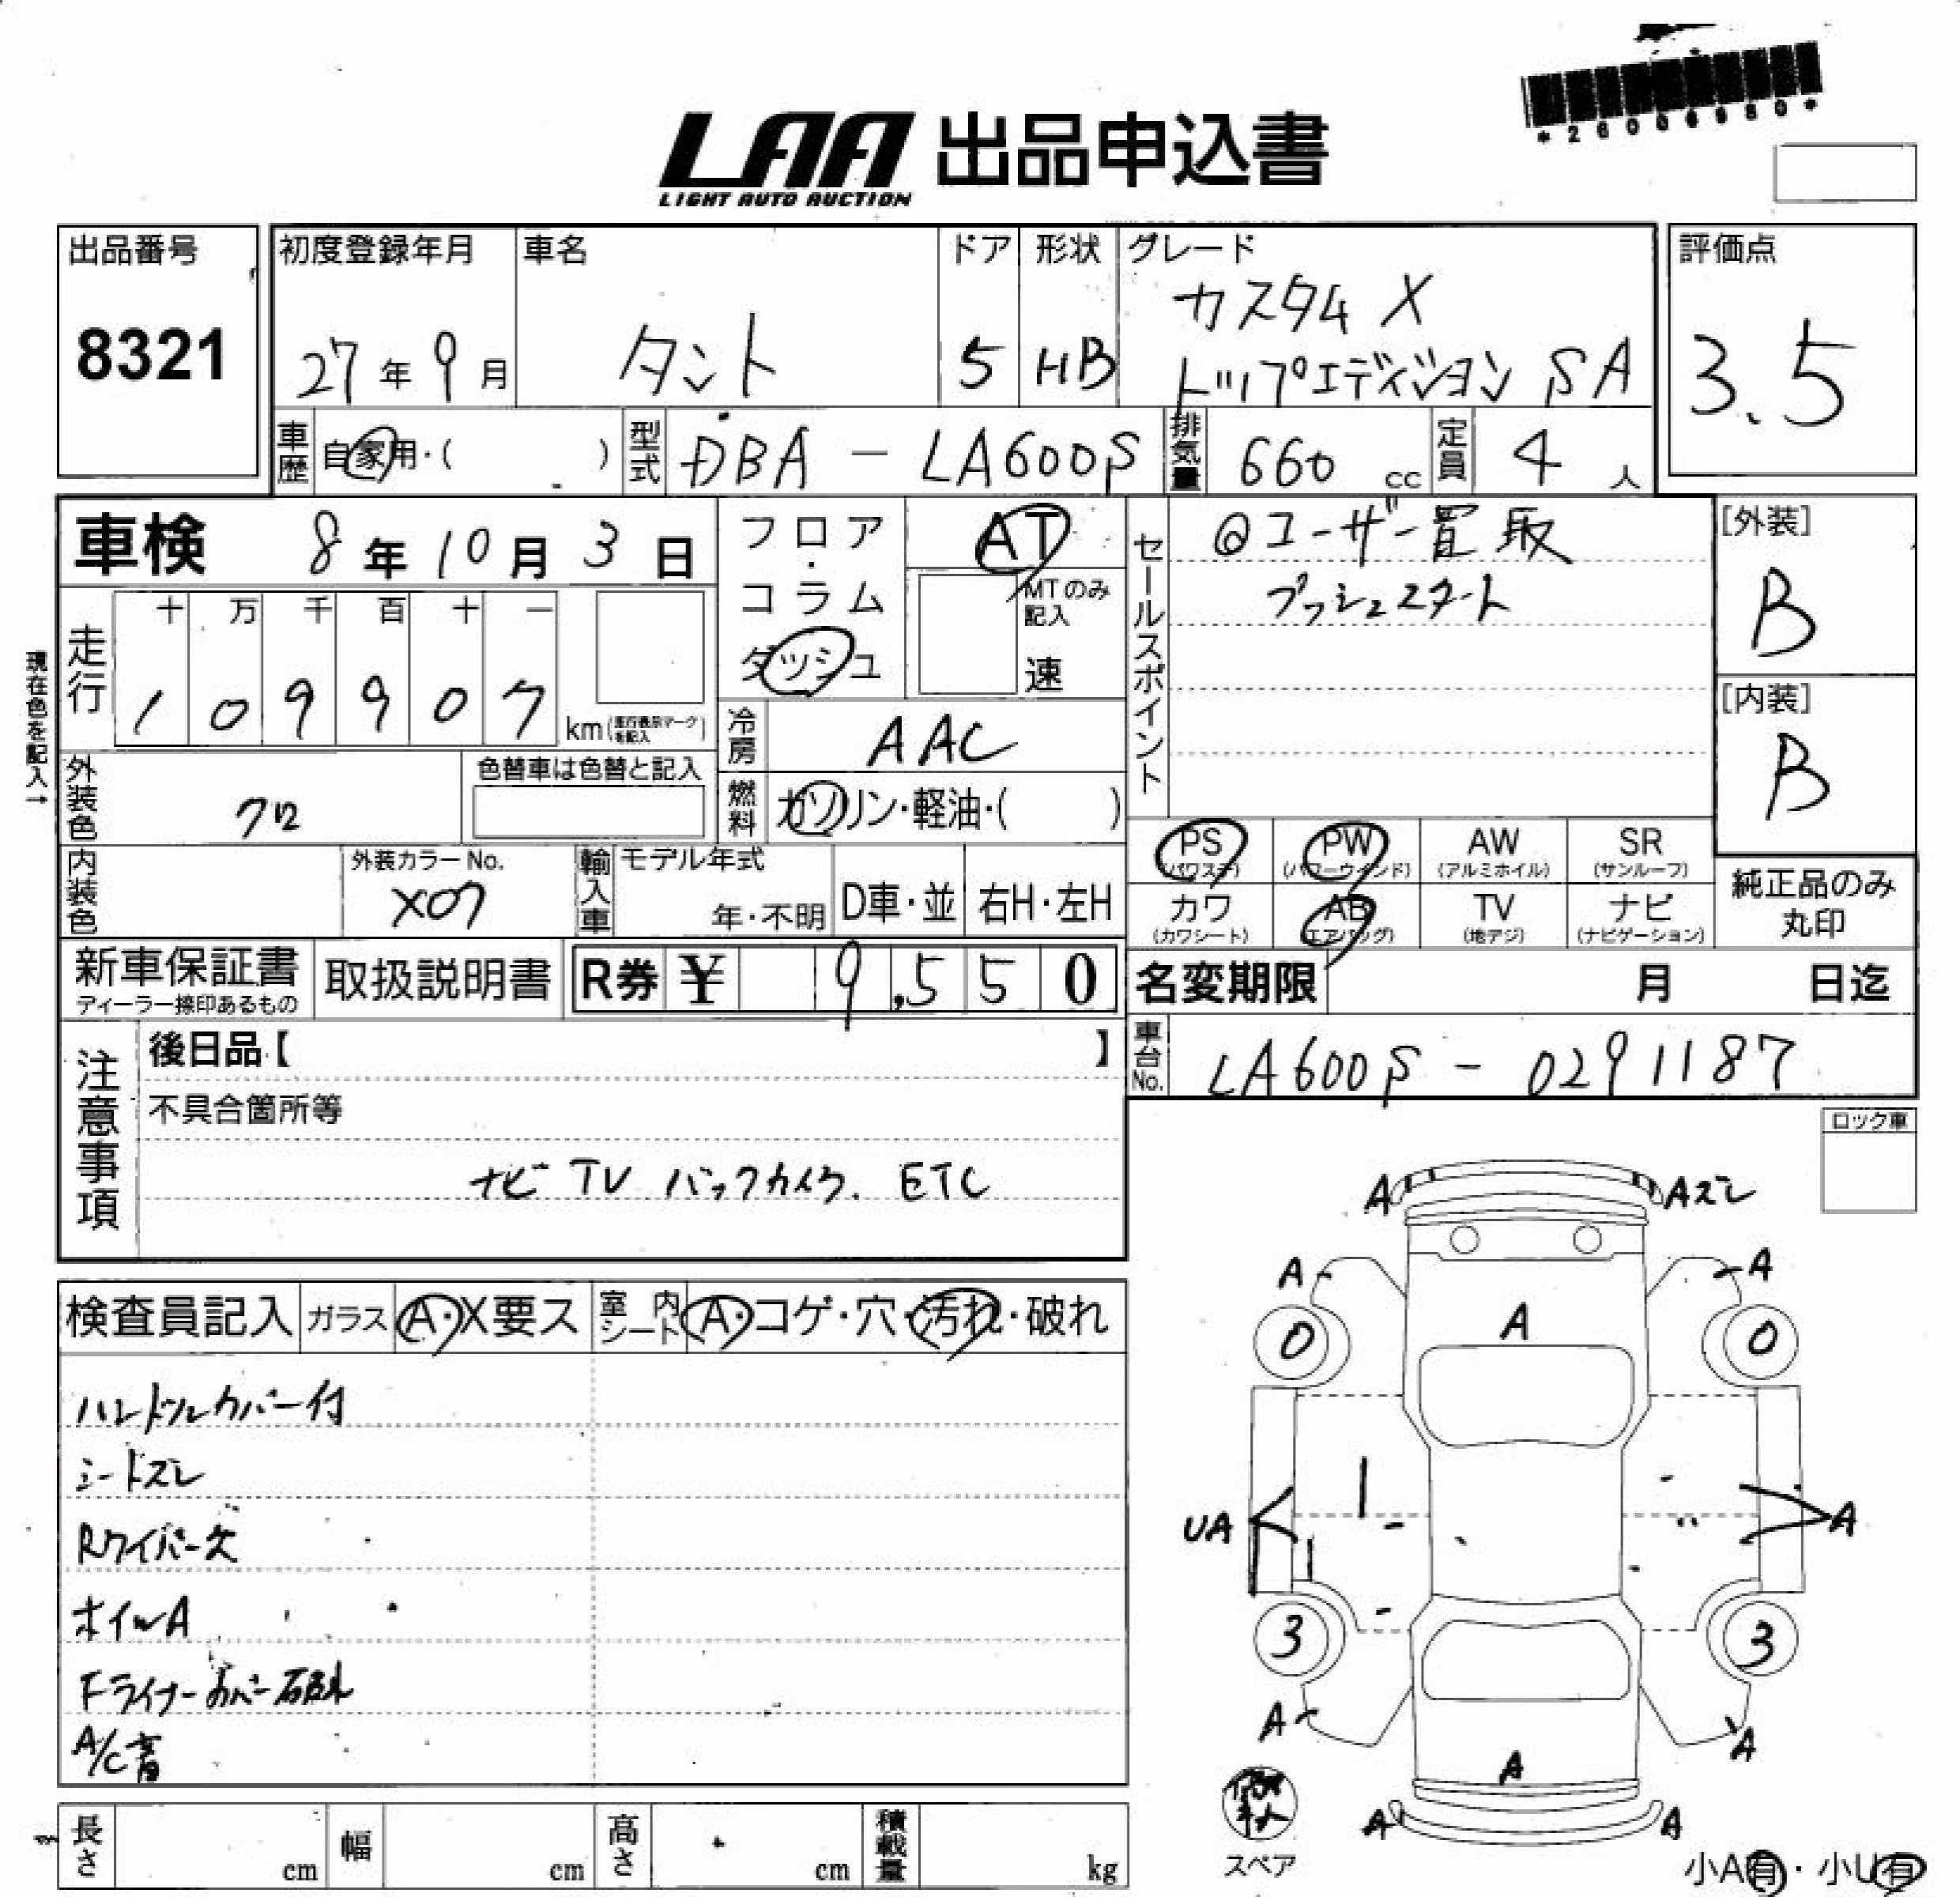 *26006980*
LAA 出品申込書
LIGHT AUTO AUCTION
出品番号
8321
初度登録年月
27年9月
車名
タント
ドア
5
形状
HB
グレード
カスタム X
トップエディション SA
評価点
3.5
車歴
自家用・( )
型式
DBA - LA600S
排気量
660 cc
定員
4 人
車検 8年10月3日
現在色を記入→
走行
十 万 千 百 十 一
1 0 9 9 0 7
km(走行表示マークを記入)
フロア・コラム
ダッシュ
AT
MTのみ
記入
速
冷房
AAC
燃料
ガソリン・軽油・( )
外装色
クロ
色替車は色替と記入
内装色
外装カラーNo.
X07
輸入車
モデル年式
年・不明
D車・並
右H・左H
新車保証書
ディーラー捺印あるもの
取扱説明書
R券 ¥ 9,550
セールスポイント
@ユーザー買取
プッシュスタート
[外装]
B
[内装]
B
PS
(パワステ)
PW
(パワーウィンド)
AW
(アルミホイル)
SR
(サンルーフ)
カワ
(カワシート)
AB
(エアバッグ)
TV
(地デジ)
ナビ
(ナビゲーション)
純正品のみ
丸印
名変期限 月 日迄
車台No.
LA600S - 0291187
注意事項
後日品【 】
不具合箇所等
ナビ TV バックカメラ. ETC
ロック車
検査員記入
ガラス A・X要ス
室内シート A・コゲ・穴・汚れ・破れ
ハンドルカバー付
シートスレ
Rワイパー欠
ホイルA
Fライナー カバー 破れ
A/C音
A
Aズレ
A
A
0
A
0
UA
A
3
3
A
A
A
A
A
スペア
小A有・小U有
長さ cm
幅 cm
高さ cm
積載量 kg